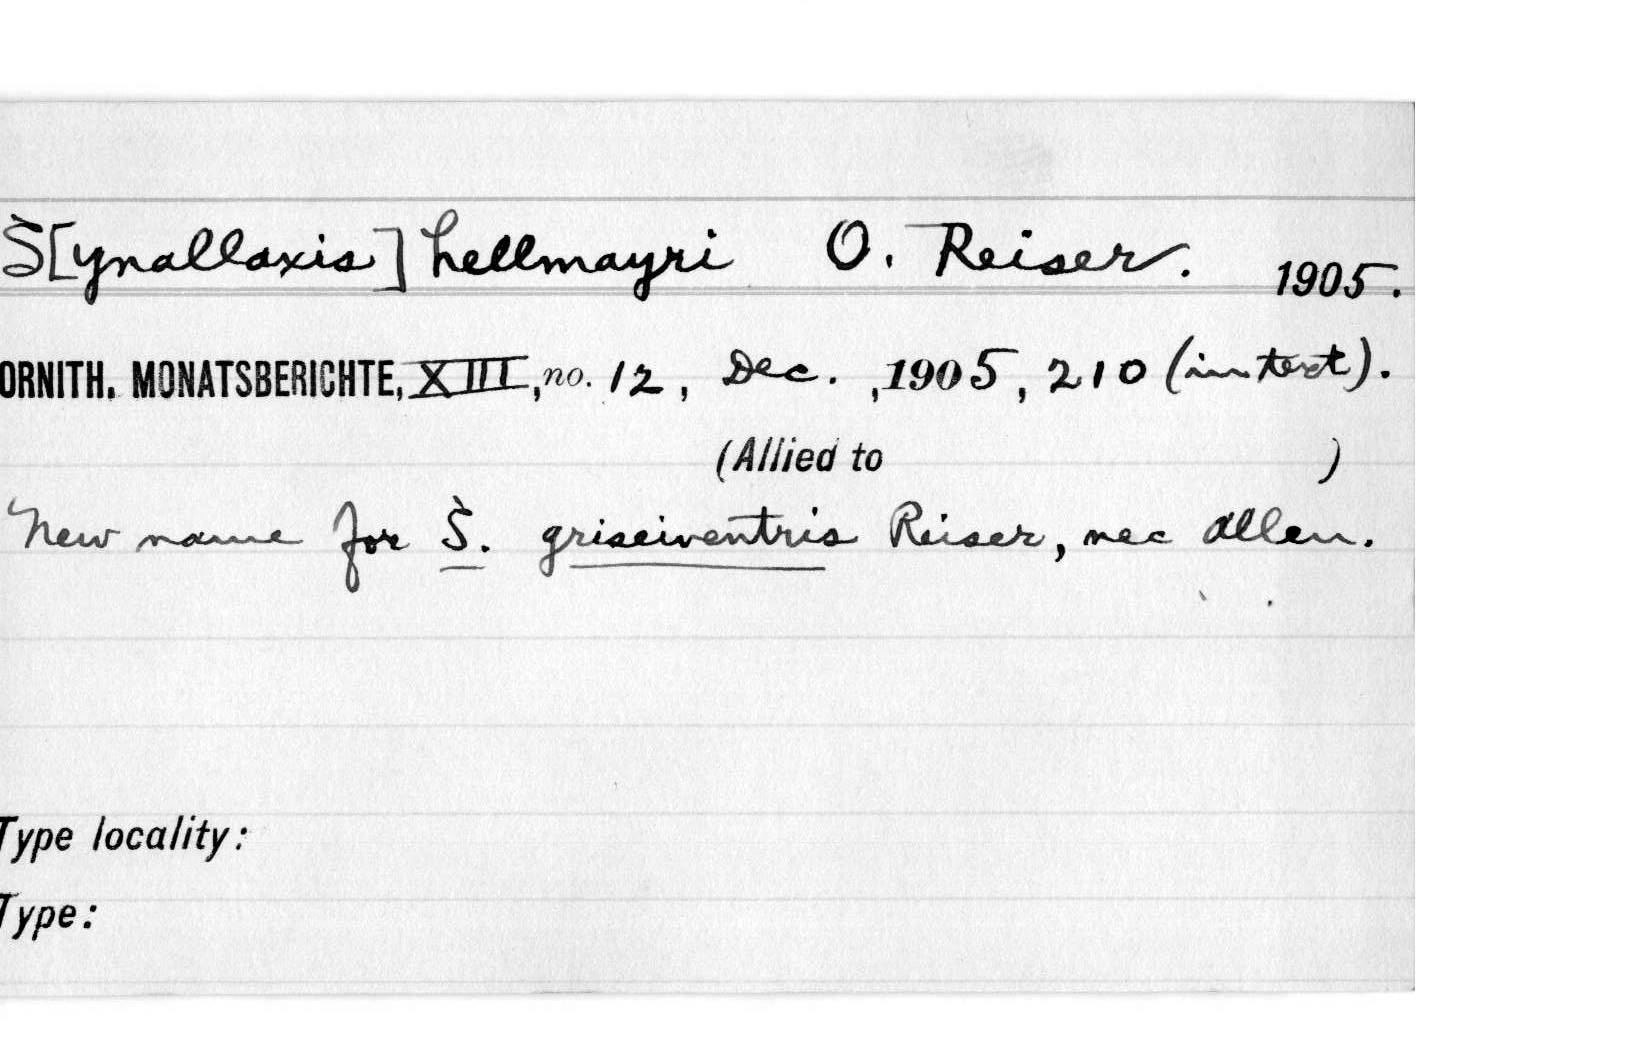 S[ynallaxis] hellmayri O. Reiser. 1905.
ORNITH. MONATSBERICHTE, XIII, no. 12, Dec. , 1905, 210 (in text).
(Allied to )
New name for S. griseiventris Reiser, nec Allen.
Type locality:
Type: